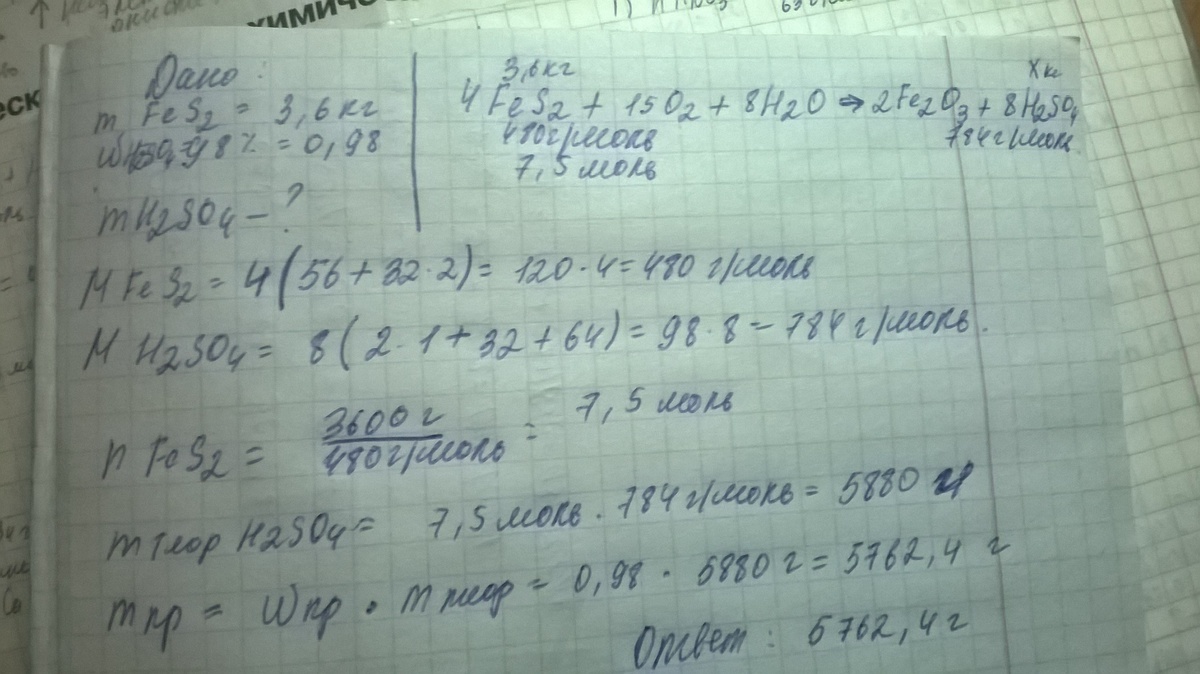 химичес
еск
Дано:
m FeS2 = 3,6 кг
98% = 0,98
m H2SO4 – ?
3,6 кг
X кг
4FeS2 + 15O2 + 8H2O → 2Fe2O3 + 8H2SO4
480г/моль 784г/моль
7,5 моль
M FeS2 = 4(56+32·2) = 120·4 = 480 г/моль
M H2SO4 = 8(2·1+32+64) = 98·8 – 784 г/моль.
n FeS2 = 3600 г / 480 г/моль = 7,5 моль
m теор H2SO4 = 7,5 моль · 784 г/моль = 5880 г
m пр = W пр · m теор = 0,98 · 5880 г = 5762,4 г
Ответ: 5762,4 г